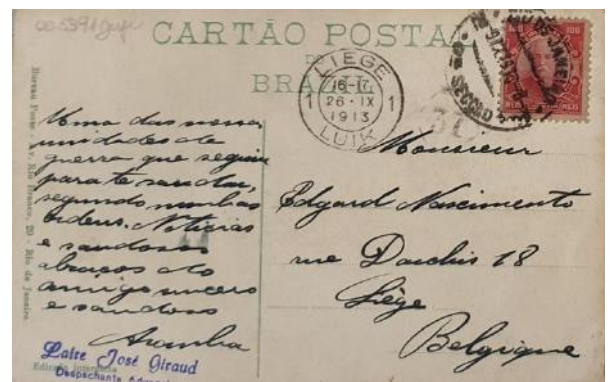 CARTÃO POSTAL
BRAZIL
LIEGE
16-17
26·IX
1913
1 1
LUIK
RIO DE JANEIRO
100 100
REIS REIS
Uma das nossas
unidades de
guerra que seguiu
para te saudar,
segundo minhas
ordens. Noticias
e saudosos
abraços do
amigo sincero
e saudoso
Monsieur
Edgard Nascimento
rue Darchis 18
Liège
Belgique
Laire José Giraud
Despachante
Rio de Janeiro